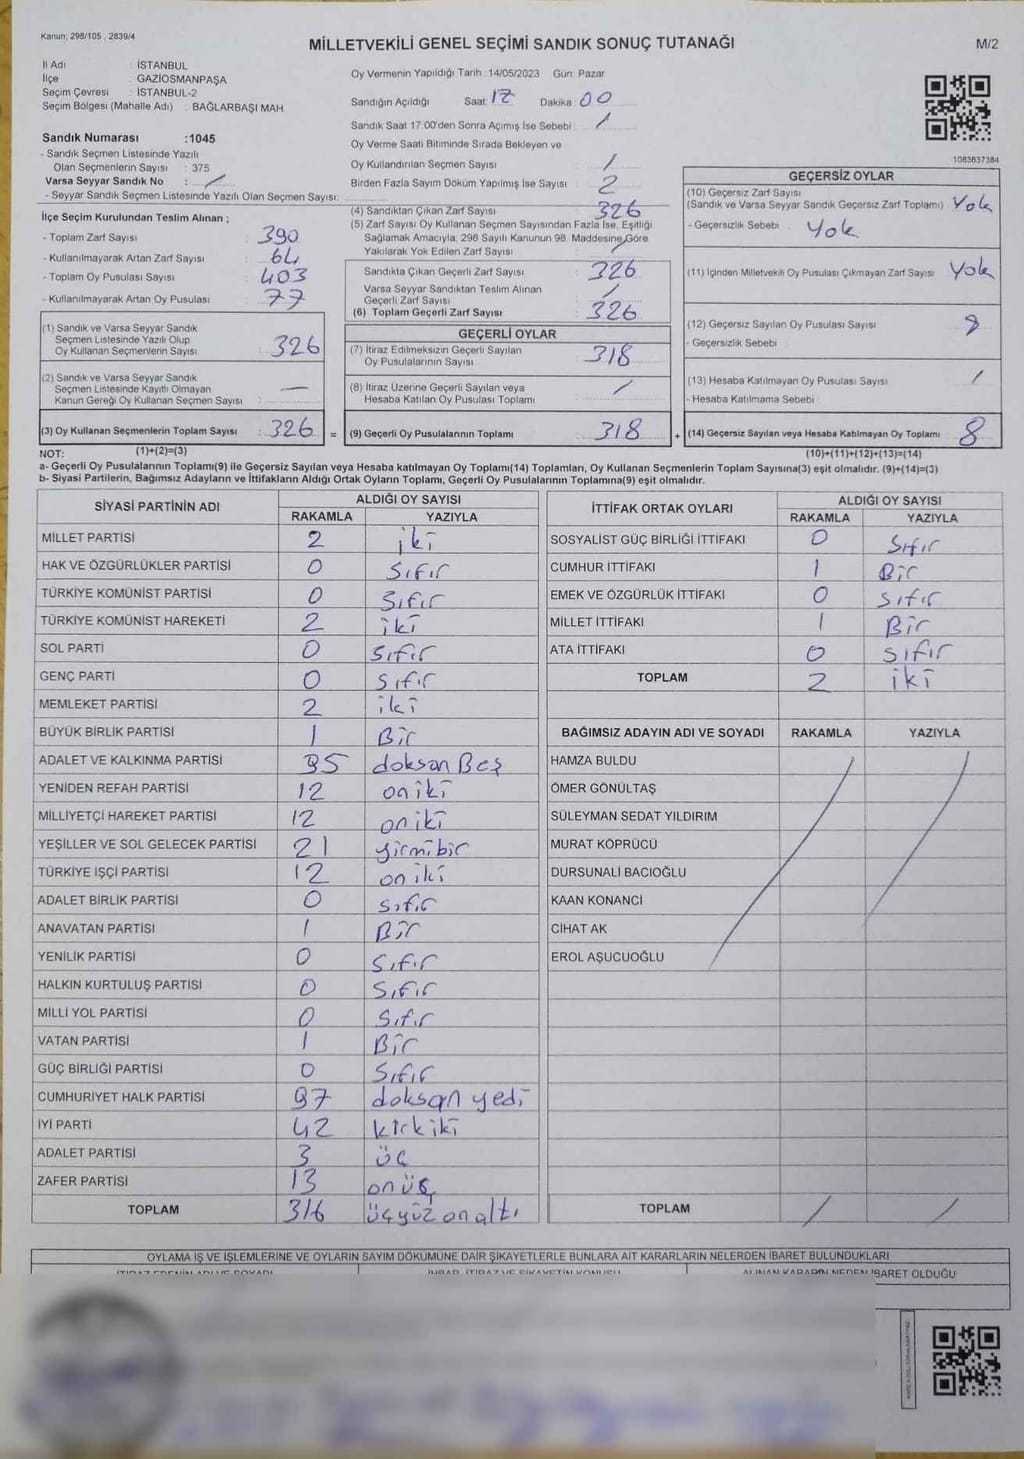 Kanun; 298/105 , 2839/4
MİLLETVEKİLİ GENEL SEÇİMİ SANDIK SONUÇ TUTANAĞI
M/2
İl Adı : İSTANBUL
İlçe : GAZİOSMANPAŞA
Seçim Çevresi : İSTANBUL-2
Seçim Bölgesi (Mahalle Adı) : BAĞLARBAŞI MAH.
Sandık Numarası :1045
- Sandık Seçmen Listesinde Yazılı
Olan Seçmenlerin Sayısı : 375
Varsa Seyyar Sandık No : /
- Seyyar Sandık Seçmen Listesinde Yazılı Olan Seçmen Sayısı:
Oy Vermenin Yapıldığı Tarih :14/05/2023 Gün: Pazar
Sandığın Açıldığı Saat: 17 Dakika: 00
Sandık Saat 17:00'den Sonra Açımış İse Sebebi : /
Oy Verme Saati Bitiminde Sırada Bekleyen ve
Oy Kullandırılan Seçmen Sayısı : /
Birden Fazla Sayım Döküm Yapılmış İse Sayısı : 2
1083637384
İlçe Seçim Kurulundan Teslim Alınan ;
- Toplam Zarf Sayısı : 390
- Kullanılmayarak Artan Zarf Sayısı : 64
- Toplam Oy Pusulası Sayısı : 403
- Kullanılmayarak Artan Oy Pusulası : 77
(1) Sandık ve Varsa Seyyar Sandık
Seçmen Listesinde Yazılı Olup
Oy Kullanan Seçmenlerin Sayısı : 326
(2) Sandık ve Varsa Seyyar Sandık
Seçmen Listesinde Kayıtlı Olmayan
Kanun Gereği Oy Kullanan Seçmen Sayısı : —
(3) Oy Kullanan Seçmenlerin Toplam Sayısı : 326
(4) Sandıktan Çıkan Zarf Sayısı : 326
(5) Zarf Sayısı Oy Kullanan Seçmen Sayısından Fazla İse, Eşitliği
Sağlamak Amacıyla; 298 Sayılı Kanunun 98. Maddesine Göre
Yakılarak Yok Edilen Zarf Sayısı : /
Sandıkta Çıkan Geçerli Zarf Sayısı : 326
Varsa Seyyar Sandıktan Teslim Alınan
Geçerli Zarf Sayısı : /
(6) Toplam Geçerli Zarf Sayısı : 326
GEÇERLİ OYLAR
(7) İtiraz Edilmeksizin Geçerli Sayılan
Oy Pusulalarının Sayısı : 318
(8) İtiraz Üzerine Geçerli Sayılan veya
Hesaba Katılan Oy Pusulası Toplamı : /
= (9) Geçerli Oy Pusulalarının Toplamı : 318
GEÇERSİZ OYLAR
(10) Geçersiz Zarf Sayısı
(Sandık ve Varsa Seyyar Sandık Geçersiz Zarf Toplamı) : Yok
- Geçersizlik Sebebi : Yok
(11) İçinden Milletvekili Oy Pusulası Çıkmayan Zarf Sayısı : Yok
(12) Geçersiz Sayılan Oy Pusulası Sayısı : 8
- Geçersizlik Sebebi :
(13) Hesaba Katılmayan Oy Pusulası Sayısı : /
- Hesaba Katılmama Sebebi :
+ (14) Geçersiz Sayılan veya Hesaba Katılmayan Oy Toplamı : 8
NOT: (1)+(2)=(3)
(10)+(11)+(12)+(13)=(14)
a- Geçerli Oy Pusulalarının Toplamı(9) ile Geçersiz Sayılan veya Hesaba katılmayan Oy Toplamı(14) Toplamları, Oy Kullanan Seçmenlerin Toplam Sayısına(3) eşit olmalıdır. (9)+(14)=(3)
b- Siyasi Partilerin, Bağımsız Adayların ve İttifakların Aldığı Ortak Oyların Toplamı, Geçerli Oy Pusulalarının Toplamına(9) eşit olmalıdır.
SİYASİ PARTİNİN ADI ALDIĞI OY SAYISI
RAKAMLA YAZIYLA
MİLLET PARTİSİ 2 iki
HAK VE ÖZGÜRLÜKLER PARTİSİ 0 Sıfır
TÜRKİYE KOMÜNİST PARTİSİ 0 Sıfır
TÜRKİYE KOMÜNİST HAREKETİ 2 iki
SOL PARTİ 0 Sıfır
GENÇ PARTİ 0 Sıfır
MEMLEKET PARTİSİ 2 iki
BÜYÜK BİRLİK PARTİSİ 1 Bir
ADALET VE KALKINMA PARTİSİ 95 doksan Beş
YENİDEN REFAH PARTİSİ 12 on iki
MİLLİYETÇİ HAREKET PARTİSİ 12 on iki
YEŞİLLER VE SOL GELECEK PARTİSİ 21 yirmibir
TÜRKİYE İŞÇİ PARTİSİ 12 on iki
ADALET BİRLİK PARTİSİ 0 Sıfır
ANAVATAN PARTİSİ 1 Bir
YENİLİK PARTİSİ 0 Sıfır
HALKIN KURTULUŞ PARTİSİ 0 Sıfır
MİLLİ YOL PARTİSİ 0 Sıfır
VATAN PARTİSİ 1 Bir
GÜÇ BİRLİĞİ PARTİSİ 0 Sıfır
CUMHURİYET HALK PARTİSİ 97 doksan yedi
İYİ PARTİ 42 kırk iki
ADALET PARTİSİ 3 üç
ZAFER PARTİSİ 13 onüç
TOPLAM 316 üçyüz on altı
İTTİFAK ORTAK OYLARI ALDIĞI OY SAYISI
RAKAMLA YAZIYLA
SOSYALİST GÜÇ BİRLİĞİ İTTİFAKI 0 Sıfır
CUMHUR İTTİFAKI 1 Bir
EMEK VE ÖZGÜRLÜK İTTİFAKI 0 Sıfır
MİLLET İTTİFAKI 1 Bir
ATA İTTİFAKI 0 Sıfır
TOPLAM 2 iki
BAĞIMSIZ ADAYIN ADI VE SOYADI RAKAMLA YAZIYLA
HAMZA BULDU
ÖMER GÖNÜLTAŞ
SÜLEYMAN SEDAT YILDIRIM
MURAT KÖPRÜCÜ
DURSUNALİ BACIOĞLU
KAAN KONANCİ
CİHAT AK
EROL AŞUCUOĞLU
TOPLAM / /
OYLAMA İŞ VE İŞLEMLERİNE VE OYLARIN SAYIM DÖKÜMÜNE DAİR ŞİKAYETLERLE BUNLARA AİT KARARLARIN NELERDEN İBARET BULUNDUKLARI
İTİRAZ EDENİN ADI VE SOYADI İHBAR, İTİRAZ VE ŞİKAYETİN KONUSU ALINAN KARARIN NEDEN İBARET OLDUĞU